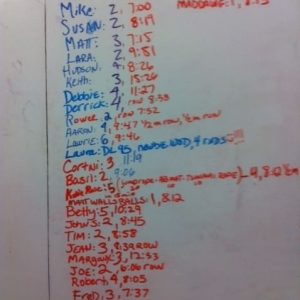 MADDAWG: 1, 8:13
Mike: 2, 7:00
SUSAN: 2, 8:19
MATT: 3, 7:15
LARA: 2, 9:51
HUDSON: 4, 8:26
Keith: 3, 15:26
Debbie: 4, 11:27
Derrick: 4, row 8:53
Rowee: 2, row 7:52
AARON: 4, 9:47 1/2m row, 1/2m run
LAWRIE: 6, 9:46
Laura: DL 95, 4 rnds
Cortni: 3 11:19
Basil: 2, 9:06
MATT WALLSBALLS: 1, 8:12
Betty: 5, 10:29
John S: 2, 8:45
TIM: 2, 8:58
JEAN: 3, 8:39 ROW
Margaux: 3, 12:33
JOE: 2, 6:06 row
Robert: 4, 8:05
Fred: 3, 7:37